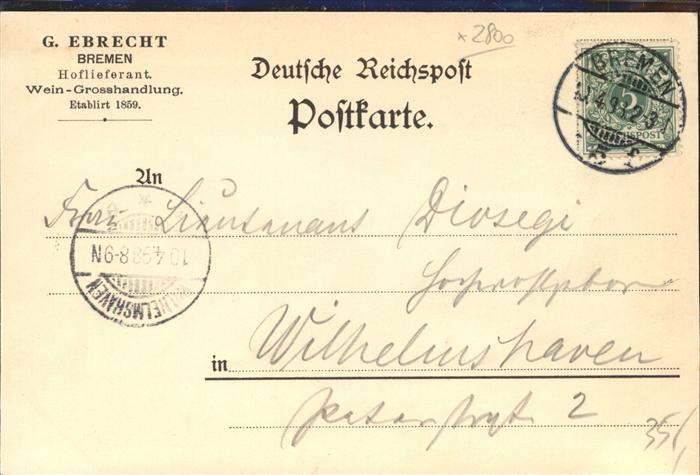 G. EBRECHT
BREMEN
Hoflieferant.
Wein-Grosshandlung.
Etablirt 1859.
x 2800
Deutsche Reichspost
Postkarte.
BREMEN
5
REICHSPOST
An
Frau Lieutenant Diosegi
10.4.98.8-9N
WILHELMSHAVEN
in Wilhelmshaven
Peterstraße 2